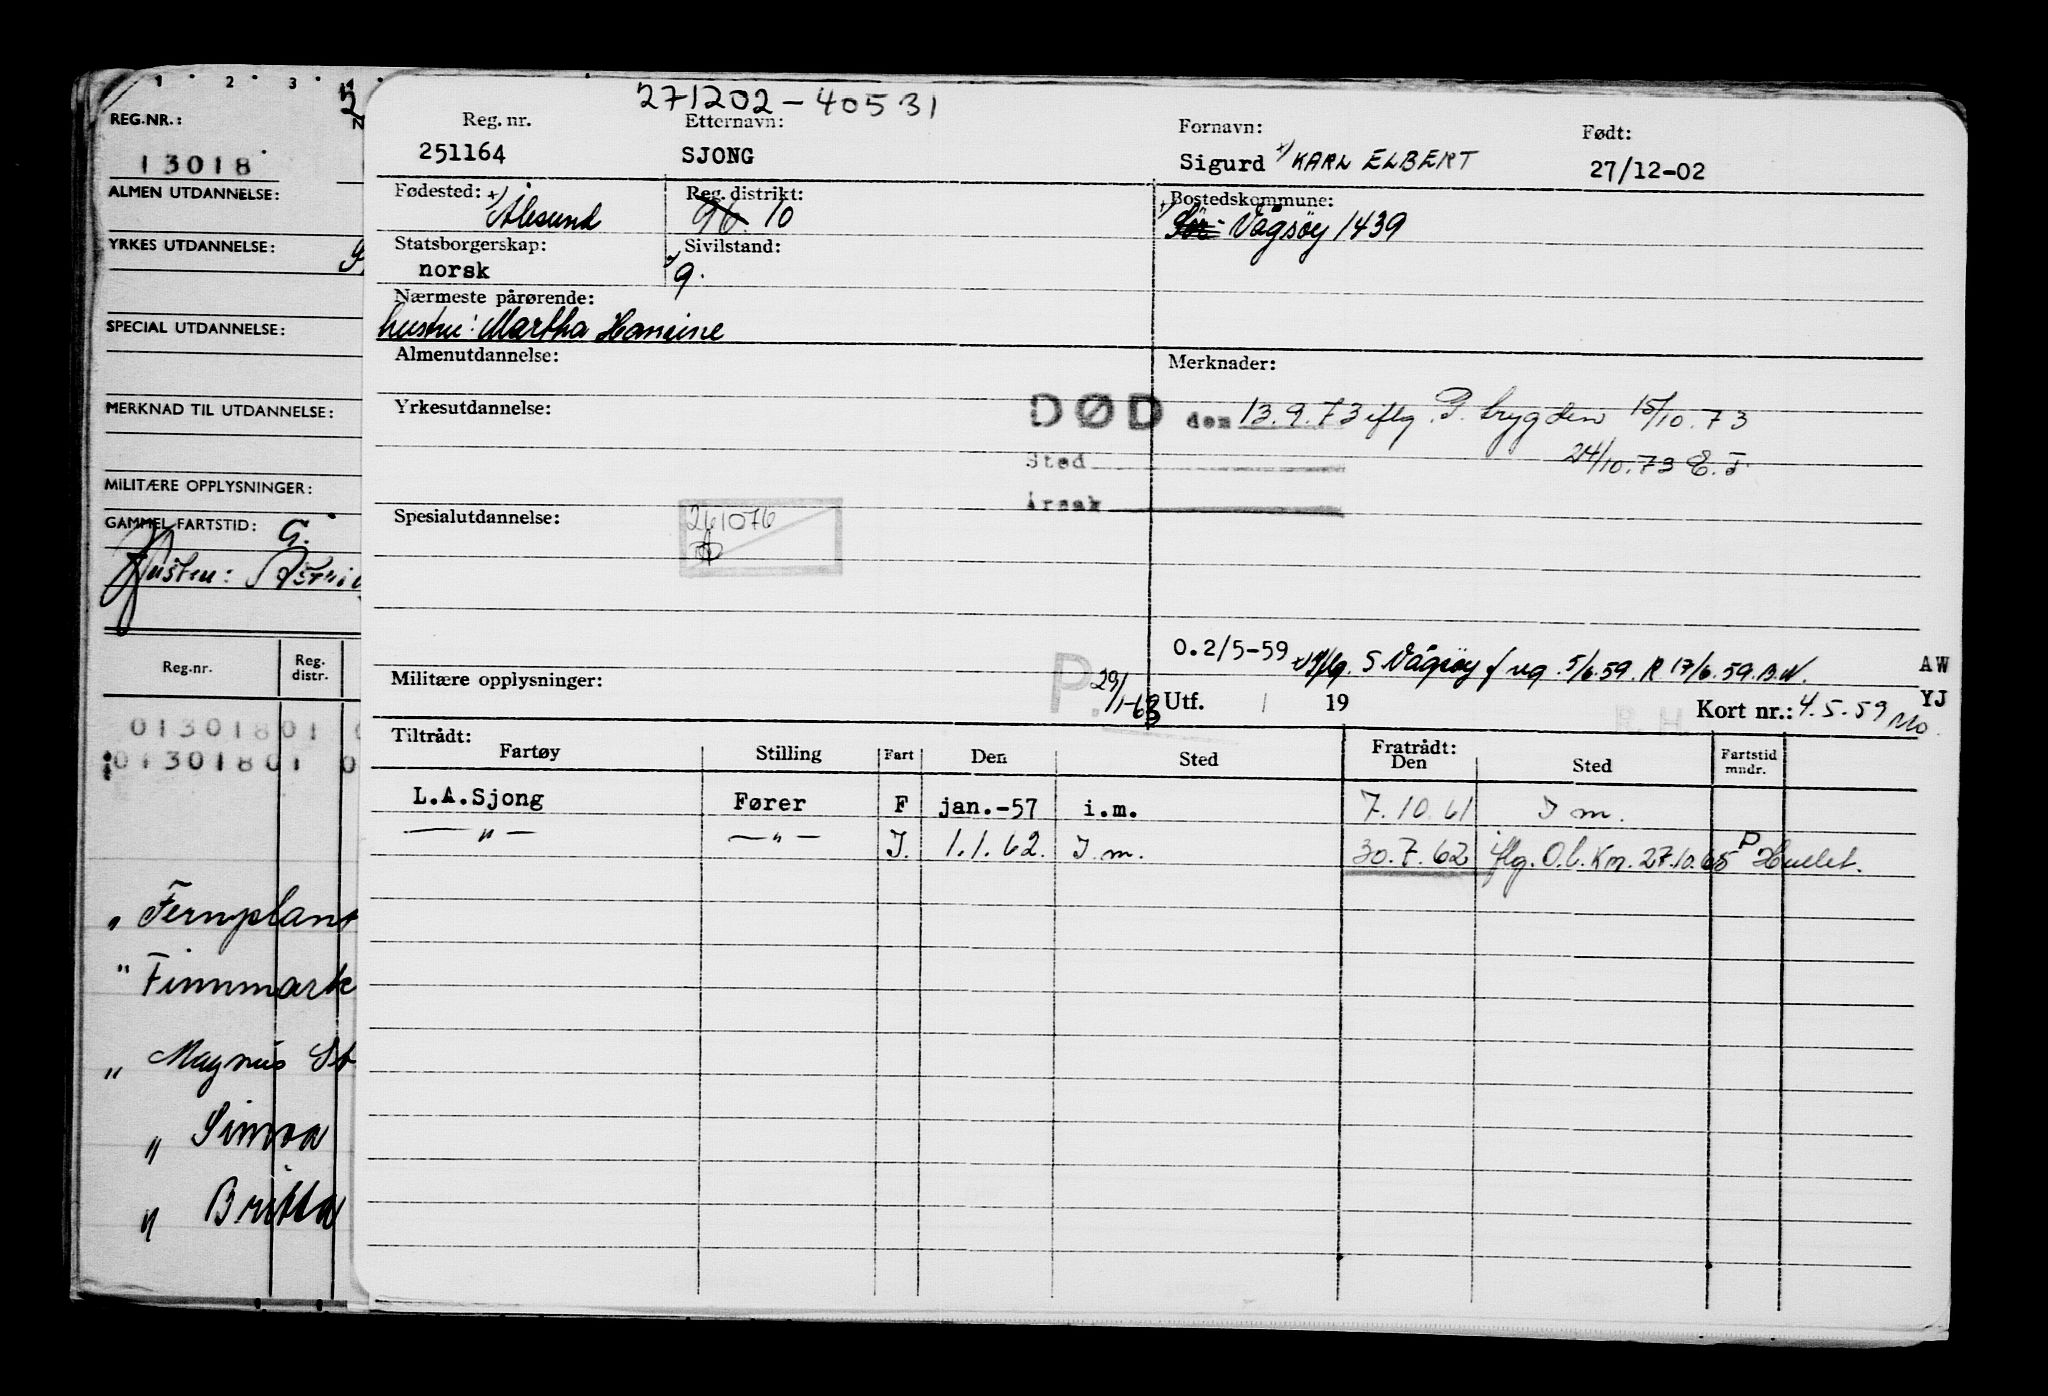 1 2 3
REG.NR.:
13018
ALMEN UTDANNELSE:
YRKES UTDANNELSE:
SPECIAL UTDANNELSE:
MERKNAD TIL UTDANNELSE:
MILITÆRE OPPLYSNINGER:
GAMMEL FARTSTID: G.
Reg.nr. Reg. distr.
01301801
01301801
" Fernplant
" Finnmark
" Magnus
" Simoa
" Britta
271202-40531
Reg. nr. Etternavn: Fornavn: Født:
251164 SJONG Sigurd x/ KARL ELBERT 27/12-02
Fødested: Reg. distrikt: Bostedskommune:
x/ Ålesund 96 10 x/ Sør- Vågsøy 1439
Statsborgerskap: Sivilstand:
norsk x/ g.
Nærmeste pårørende:
hustru: Martha Hansine
Almenutdannelse: Merknader:
Yrkesutdannelse: DØD den 13.9.73 iflg. P. trygden 15/10.73
Sted 24/10.73 E.T.
Årsak
Spesialutdannelse: 261076
0.2/5-59 x/ iflg. S Vågsøy f reg. 5/6.59. R 17/6.59. B.N. AW
Militære opplysninger: P. 29/1-63 Utf. / 19 RH Kort nr.: 4.5.59 Mo. YJ
Tiltrådt: Fratrådt:
Fartøy Stilling Fart Den Sted Den Sted Fartstid mndr.
L.A.Sjong Fører F jan.-57 i.m. 7.10.61 I m.
— " — — " — I. 1.1.62. I m. 30.7.62 iflg. O.l. Km. 27.10.65 P